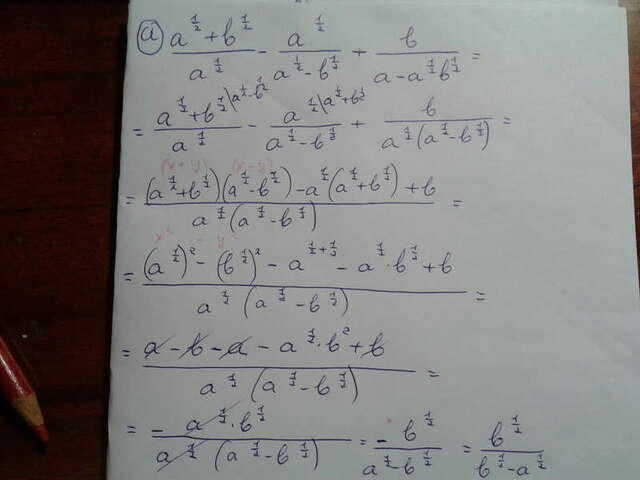 а) (a^(1/2) + b^(1/2))/a^(1/2) - a^(1/2)/(a^(1/2) - b^(1/2)) + b/(a - a^(1/2) b^(1/2)) =
= (a^(1/2) + b^(1/2) \a^(1/2) - b^(1/2))/a^(1/2) - (a^(1/2) \a^(1/2) + b^(1/2))/(a^(1/2) - b^(1/2)) + b/(a^(1/2) (a^(1/2) - b^(1/2))) =
(x + y) (x - y)
= ((a^(1/2) + b^(1/2))(a^(1/2) - b^(1/2)) - a^(1/2)(a^(1/2) + b^(1/2)) + b)/(a^(1/2) (a^(1/2) - b^(1/2))) =
x² - y²
= ((a^(1/2))² - (b^(1/2))² - a^(1/2 + 1/2) - a^(1/2) · b^(1/2) + b)/(a^(1/2) (a^(1/2) - b^(1/2))) =
= (a - b - a - a^(1/2) · b² + b)/(a^(1/2) (a^(1/2) - b^(1/2))) =
= (- a^(1/2) · b^(1/2))/(a^(1/2) (a^(1/2) - b^(1/2))) = - b^(1/2)/(a^(1/2) - b^(1/2)) = b^(1/2)/(b^(1/2) - a^(1/2))